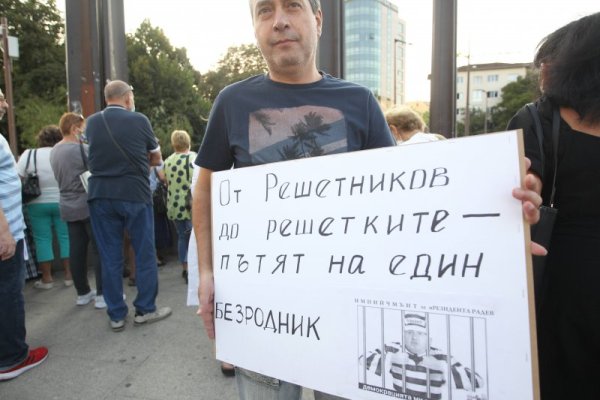 От Решетников
до решетките —
пътят на един
безродник
ИМПИЙЧМЪНТ на пРЕЗИДЕНТА РАДЕВ
демокрацията ми